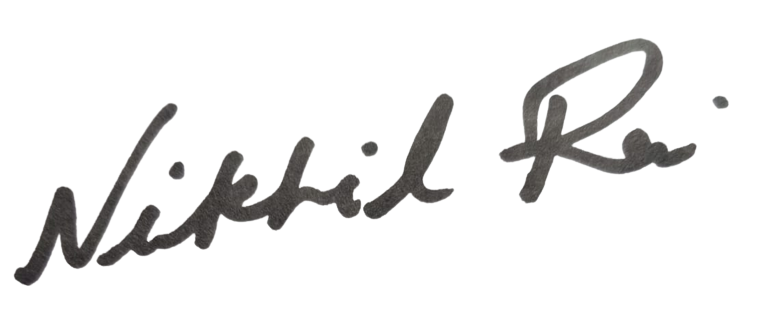 Nikhil Rai